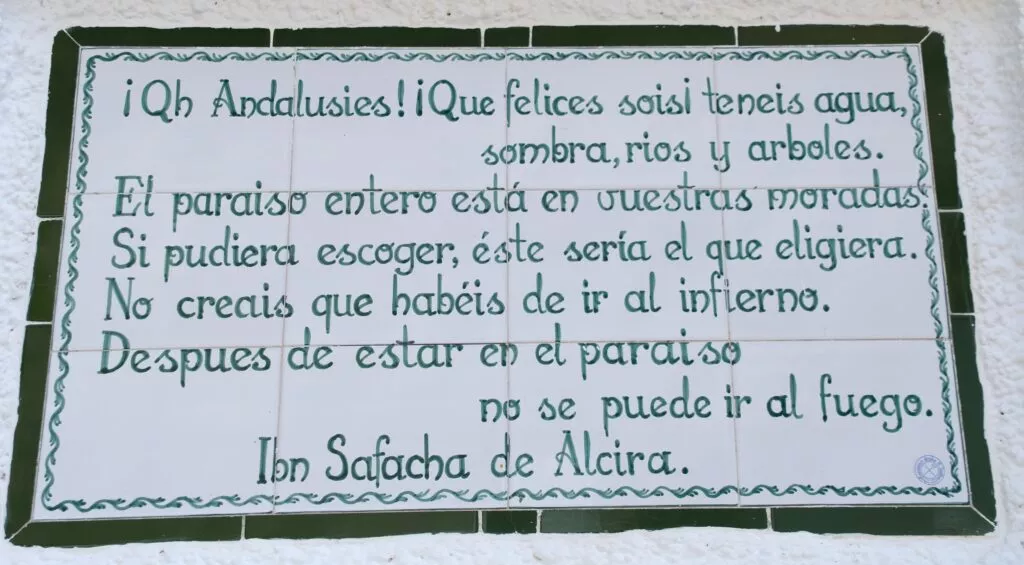 ¡Qh Andalusies! ¡Que felices soisi teneis agua,
sombra, rios y arboles.
El paraiso entero está en vuestras moradas.
Si pudiera escoger, éste sería el que eligiera.
No creais que habéis de ir al infierno.
Despues de estar en el paraiso
no se puede ir al fuego.
Ibn Safacha de Alcira.